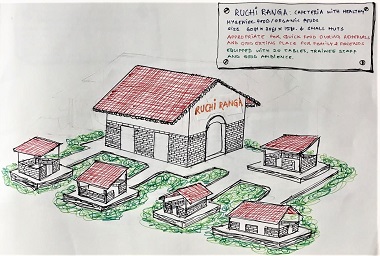 RUCHI RANGA: CAFETERIA WITH HEALTHY
HYGIENIC FOOD/ORGANIC FOODS
SIZE 60ft x 30ft x 15ft. 6 SMALL HUTS
APPROPRIATE FOR QUICK FOOD DURING REHEARSALS
AND GOOD EATING PLACE FOR FAMILY & FRIENDS
EQUIPPED WITH 20 TABLES, TRAINED STAFF
AND GOOD AMBIENCE.
RUCHI RANGA